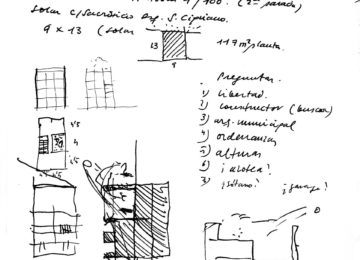 /100. (2ª
solar c/Sacrónica esq. S. Cipriano.
9 x 13 (solar
13
117 m² planta.
9
Preguntar.
1) libertad.
2) constructor (buscar)
3) arq. municipal
4) ordenanzas
5) alturas
6) ¿azotea?
7) ¿sótano? ¿garage?
4